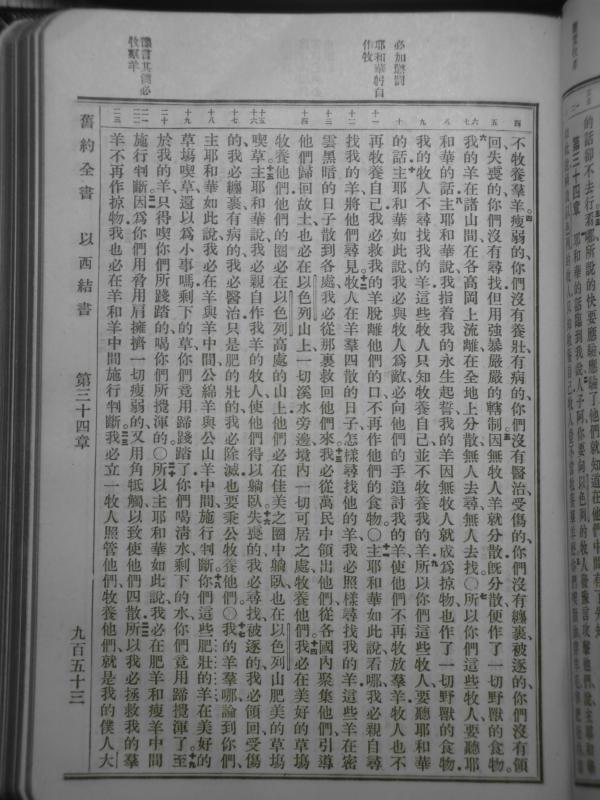 的話却不去行看哪所說的快要應驗應驗了他們就知道在他們中間有了先知
第三十四章 耶和華的話臨到我說人子阿你要向以色列的牧人發預言攻擊他們說主耶和華
必加懲罰
耶和華躬自
作牧
預言其僕必
牧羣羊
四 不牧養羣羊瘦弱的、你們沒有養壯有病的、你們沒有醫治受傷的、你們沒有纏裹被逐的、你們沒有領
五 回失喪的、你們沒有尋找但用強暴嚴嚴的轄制因無牧人羊就分散旣分散便作了一切野獸的食物。
七六 我的羊在諸山間在各高岡上流離在全地上分散無人去尋無人去找。〇所以你們這些牧人要聽耶
八 和華的話主耶和華說我指着我的永生起誓我的羊因無牧人就成爲掠物也作了一切野獸的食物
九 我的牧人不尋找我的羊這些牧人只知牧養自己並不牧養我的羊所以你們這些牧人要聽耶和華
十 的話主耶和華如此說我必與牧人爲敵必向他們的手追討我的羊使他們不再牧放羣羊牧人也不
十一 再牧養自己我必救我的羊脫離他們的口不再作他們的食物〇主耶和華如此說看哪我必親自尋
十二 找我的羊將他們尋見牧人在羊羣四散的日子怎樣尋找他的羊我必照樣尋找我的羊這些羊在密
十三 雲黑暗的日子散到各處我必從那裏救回他們來我必從萬民中領出他們從各國內聚集他們引導
十四 他們歸回故土也必在以色列山上一切溪水旁邊境內一切可居之處牧養他們我必在美好的草塲
牧養他們他們的圈必在以色列高處的山上他們必在佳美之圈中躺臥也在以色列山肥美的草塲
十六 十五 喫草主耶和華說我必親自作我羊的牧人使他們得以躺臥失喪的我必尋找被逐的我必領回受傷
十七 的我必纏裹有病的我必醫治只是肥的壯的我必除滅也要秉公牧養他們〇我的羊羣哪論到你們
十八 主耶和華如此說我必在羊與羊中間公綿羊與公山羊中間施行判斷你們這些肥壯的羊在美好的
十九 草塲喫草還以爲小事嗎剩下的草你們竟用蹄踐踏了你們喝淸水剩下的水你們竟用蹄攪渾了至
二十 於我的羊只得喫你們所踐踏的喝你們所攪渾的〇所以主耶和華如此說我必在肥羊和瘦羊中間
施行判斷因爲你們用脅用肩擁擠一切瘦弱的又用角牴觸以致使他們四散所以我必拯救我的羣
羊不再作掠物我也必在羊和羊中間施行判斷我必立一牧人照管他們牧養他們就是我的僕人大
舊約全書 以西結書 第三十四章 九百五十三